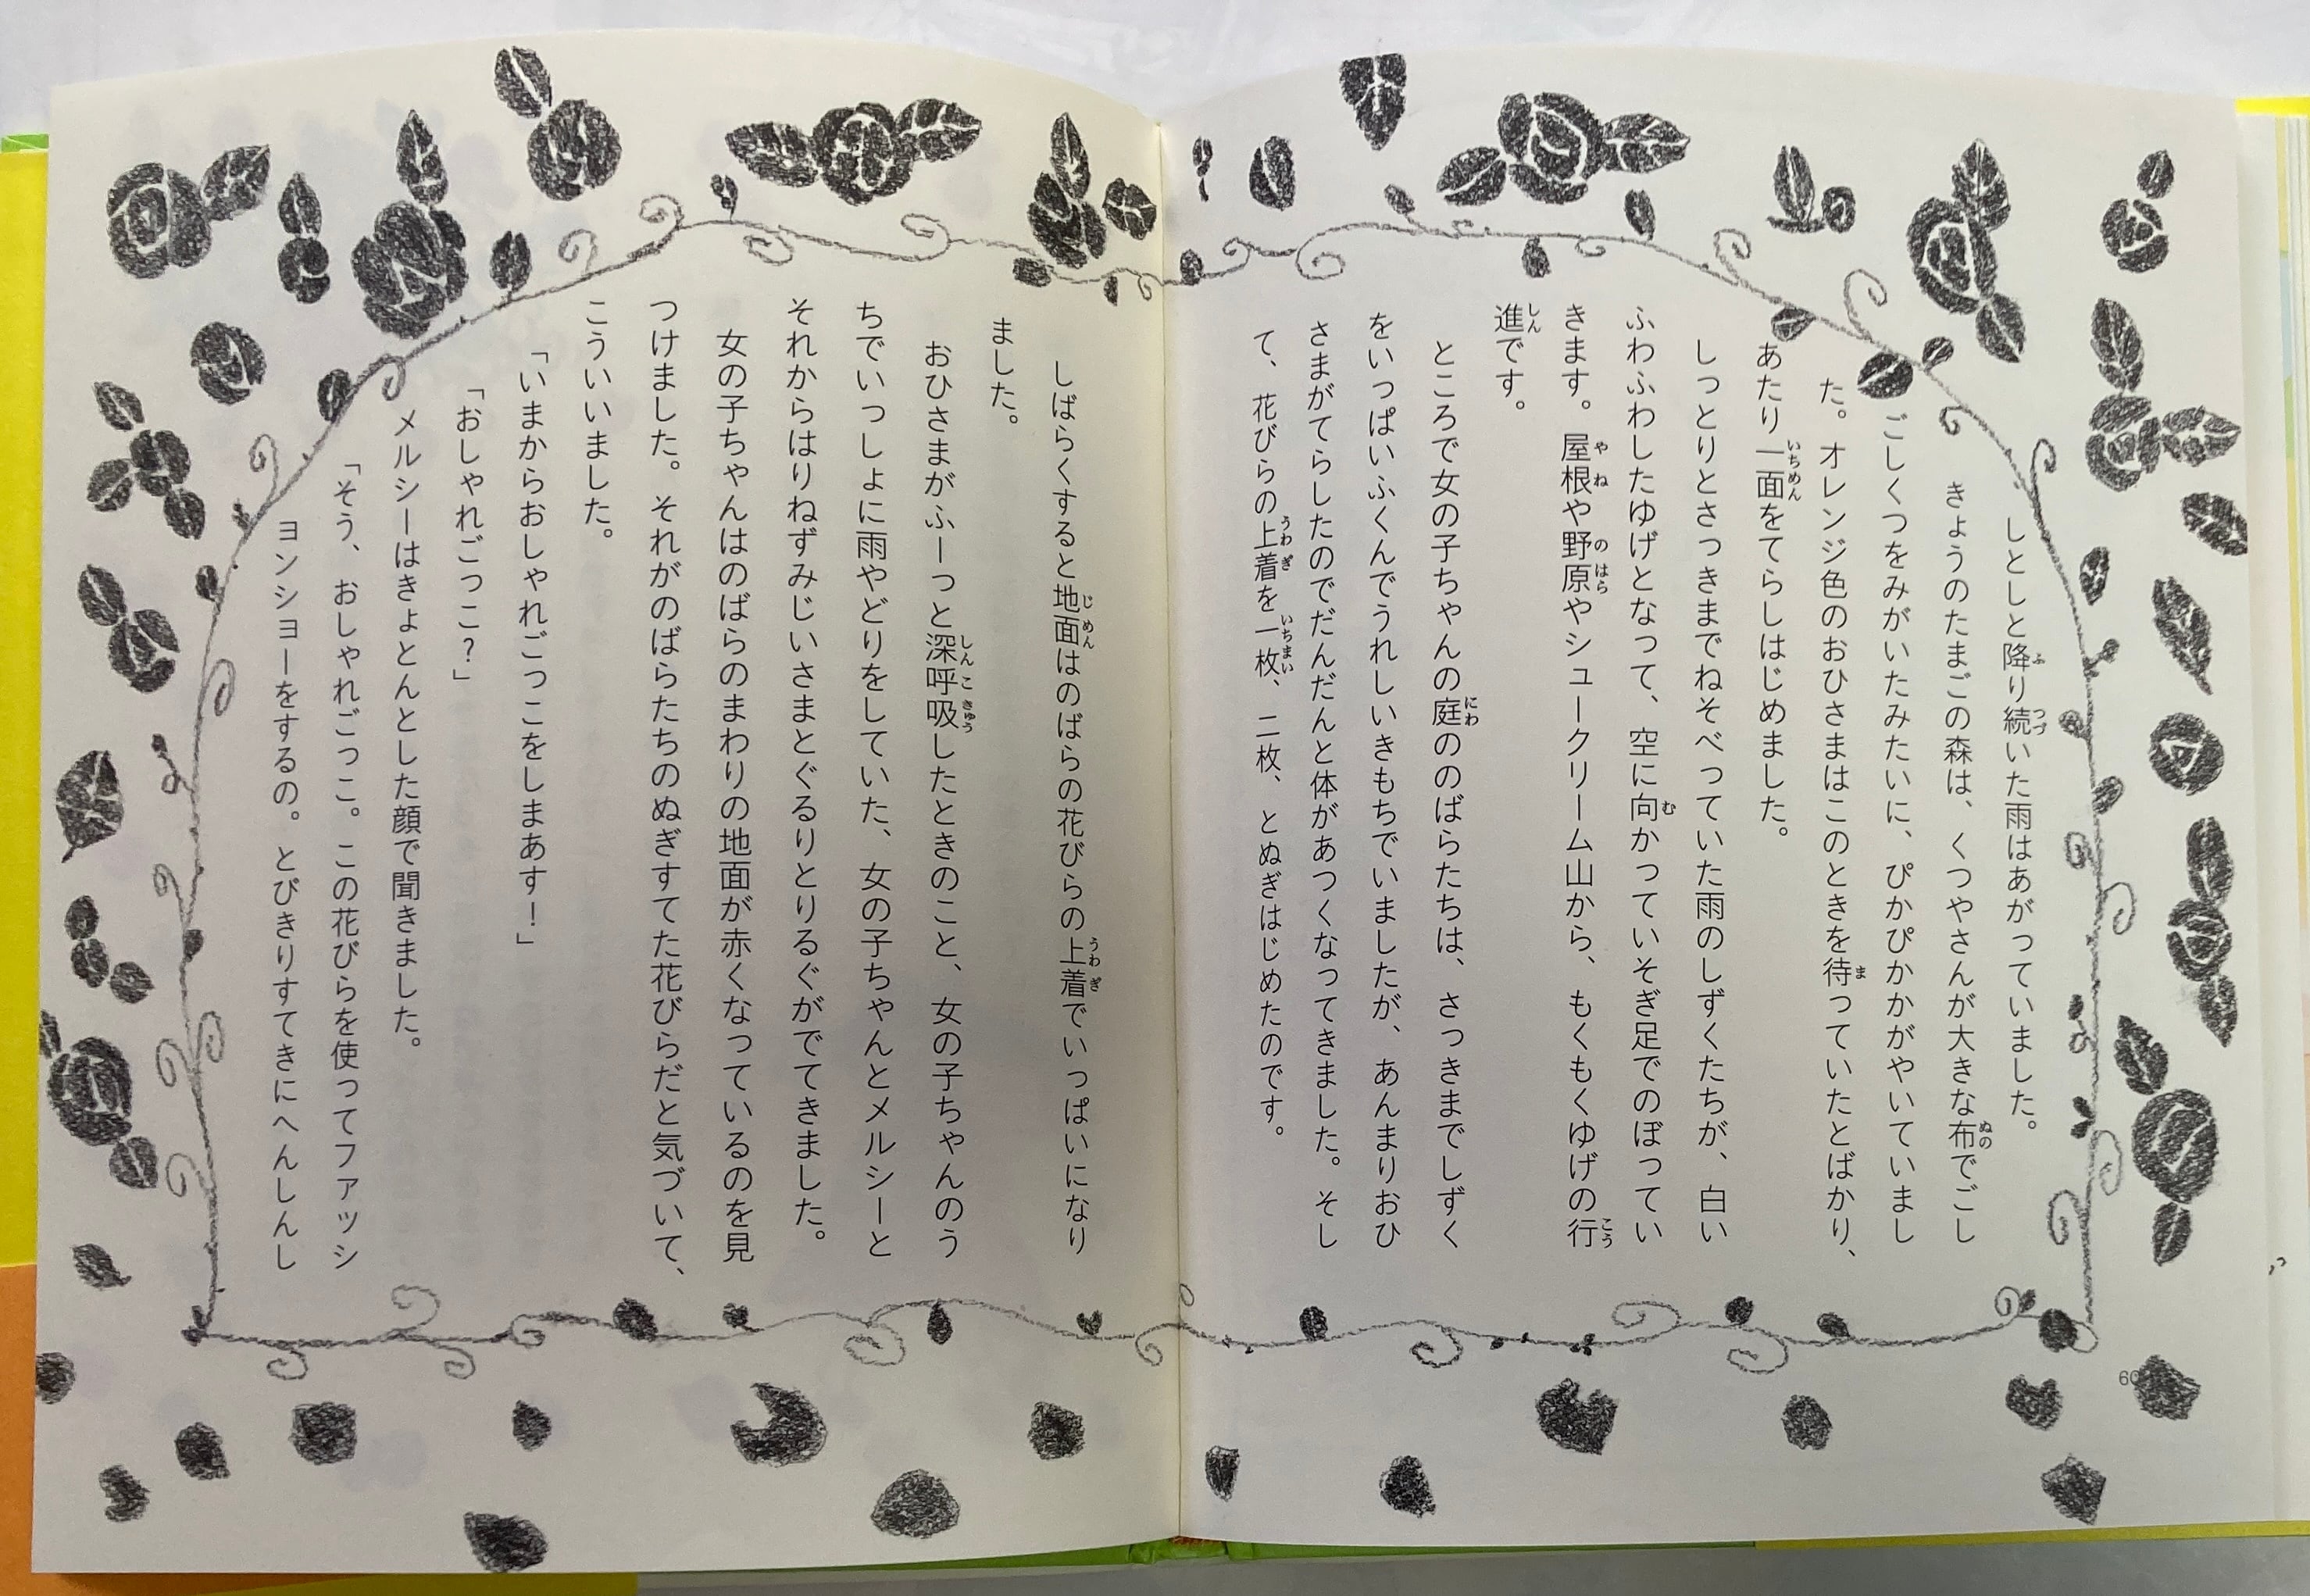 しとしと降り続いた雨はあがっていました。
きょうのたまごの森は、くつやさんが大きな布でごし
ごしくつをみがいたみたいに、ぴかぴかかがやいていまし
た。オレンジ色のおひさまはこのときを待っていたとばかり、
あたり一面をてらしはじめました。
しっとりとさっきまでねそべっていた雨のしずくたちが、白い
ふわふわしたゆげとなって、空に向かっていそぎ足でのぼってい
きます。屋根や野原やシュークリーム山から、もくもくゆげの行
進です。
ところで女の子ちゃんの庭ののばらたちは、さっきまでしずく
をいっぱいふくんでうれしいきもちでいましたが、あんまりおひ
さまがてらしたのでだんだんと体があつくなってきました。そし
て、花びらの上着を一枚、二枚、とぬぎはじめたのです。
60
しばらくすると地面はのばらの花びらの上着でいっぱいになり
ました。
おひさまがふーっと深呼吸したときのこと、女の子ちゃんのう
ちでいっしょに雨やどりをしていた、女の子ちゃんとメルシーと
それからはりねずみじいさまとぐるりとりるぐがでてきました。
女の子ちゃんはのばらのまわりの地面が赤くなっているのを見
つけました。それがのばらたちのぬぎすてた花びらだと気づいて、
こういいました。
「いまからおしゃれごっこをしまあす！」
「おしゃれごっこ？」
メルシーはきょとんとした顔で聞きました。
「そう、おしゃれごっこ。この花びらを使ってファッシ
ヨンショーをするの。とびきりすてきにへんしんし